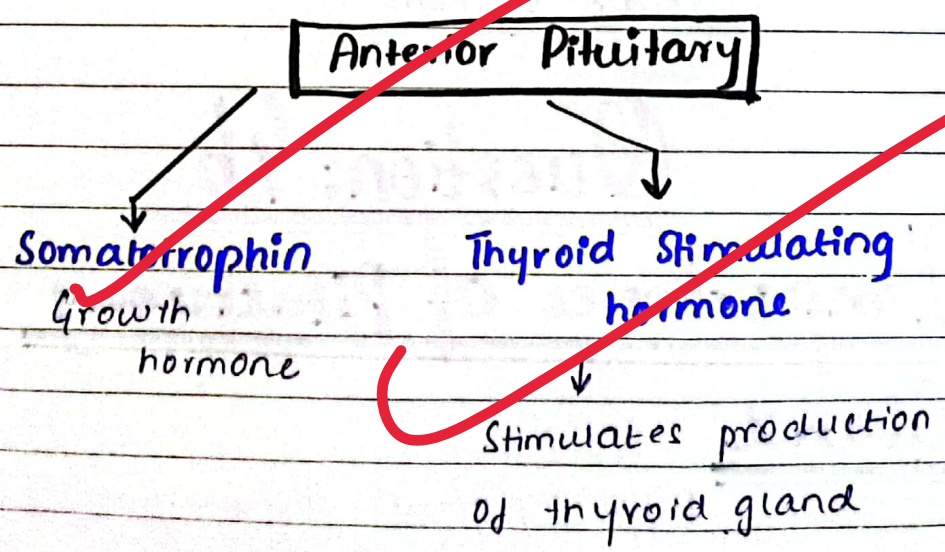 Anterior Pituitary
Somatotrophin
Growth
hormone
Thyroid Stimulating
hormone
Stimulates production
of thyroid gland